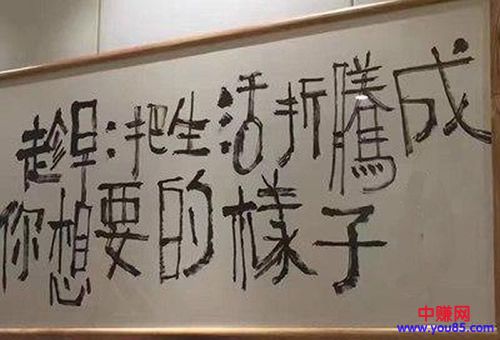 趁早:把生活折騰成
你想要的樣子
中赚网
www.you85.com